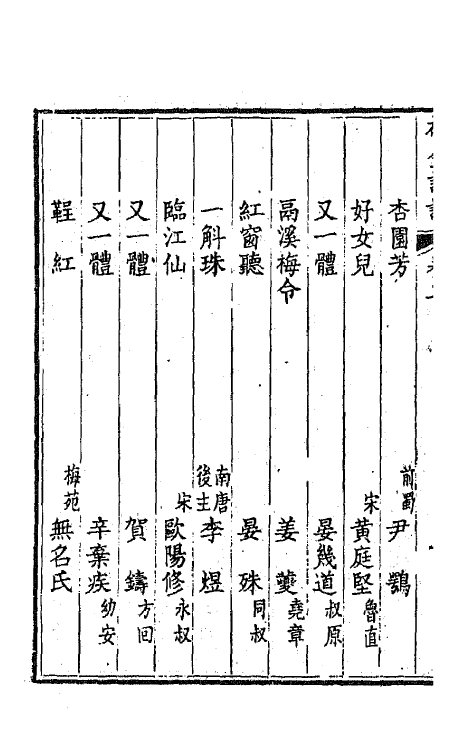 杏園芳 前蜀 尹鶚
好女兒 宋 黃庭堅 魯直
又一體 晏幾道 叔原
鬲溪梅令 姜夔 堯章
紅窗聽 晏殊 同叔
一斛珠 南唐後主 李煜
臨江仙 宋 歐陽修 永叔
又一體 賀鑄 方回
又一體 辛棄疾 幼安
鞓紅 梅苑 無名氏